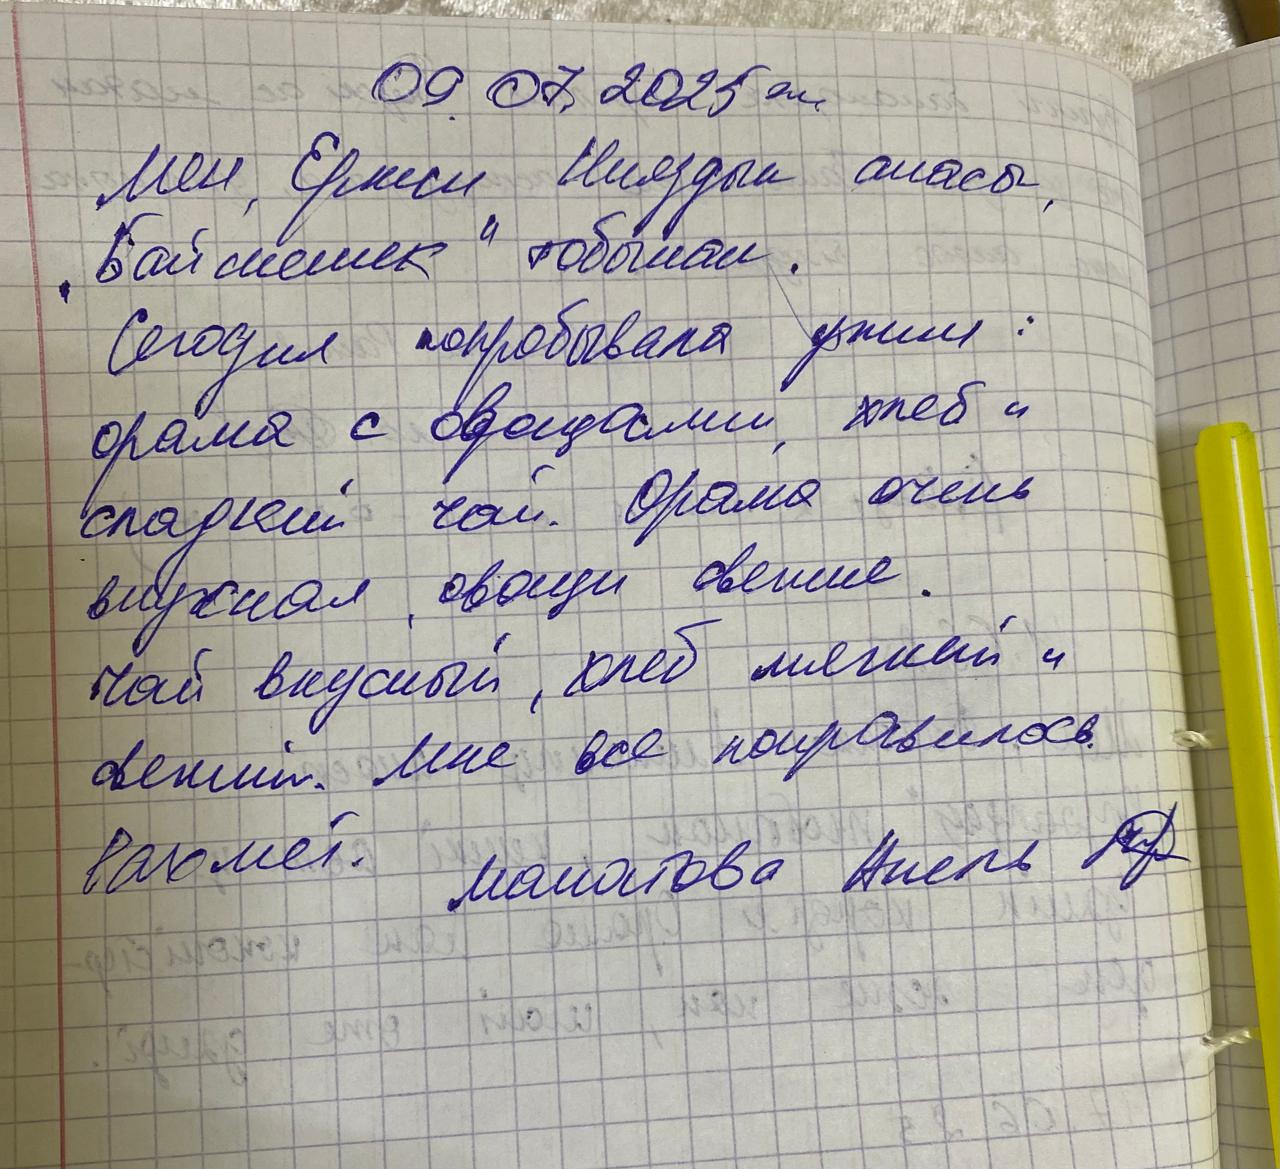 09.07.2025 ж.
Мен, Ержан Нияздын анасы,
"Байшешек" тобынан.
Сегодня попробывала ужин:
орама с овощами, хлеб и
сладкий чай. Орама очень
вкусная, овощи свежие.
Чай вкусный, хлеб мягкий и
свежий. Мне все понравилось.
Рахмет. Маматова Анель